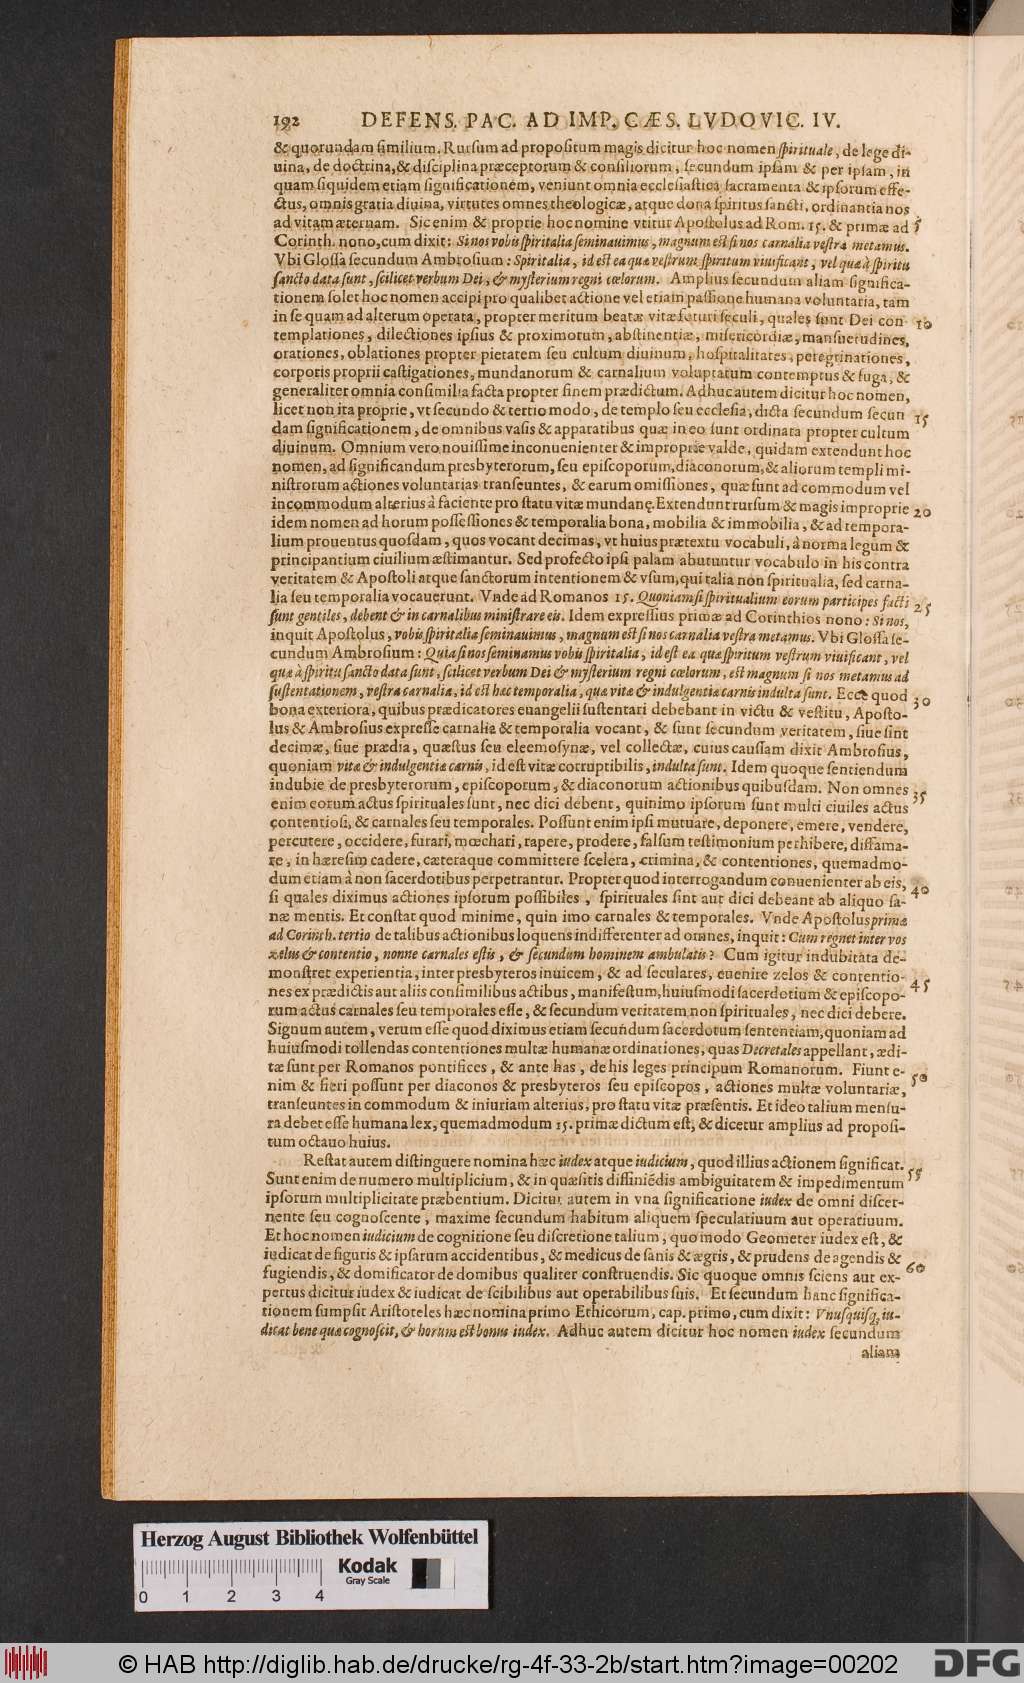 192 DEFENS. PAC. AD IMP. CÆS. LVDOVIC. IV.
& quorundam similium. Rursum ad propositum magis dicitur hoc nomen spirituale, de lege di-
uina, de doctrina, & disciplina præceptorum & consiliorum, secundum ipsam & per ipsam, in
quam siquidem etiam significationem, veniunt omnia ecclesiastica sacramenta & ipsorum effe-
ctus, omnis gratia diuina, virtutes omnes theologicæ, atque dona spiritus sancti, ordinantia nos
ad vitam æternam. Sic enim & proprie hoc nomine vtitur Apostolus ad Rom. 15. & primæ ad 5
Corinth. nono, cum dixit: Si nos vobis spiritalia seminauimus, magnum est si nos carnalia vestra metamus.
Vbi Glossa secundum Ambrosium: Spiritalia, id est ea quæ vestrum spiritum viuificant, vel quæ à spiritu
sancto data sunt, scilicet verbum Dei, & mysterium regni cœlorum. Amplius secundum aliam significa-
tionem solet hoc nomen accipi pro qualibet actione vel etiam passione humana voluntaria, tam
in se quam ad alterum operata, propter meritum beatæ vitæ futuri seculi, quales sunt Dei con- 10
templationes, dilectiones ipsius & proximorum, abstinentiæ, misericordiæ, mansuetudines,
orationes, oblationes propter pietatem seu cultum diuinum, hospitalitates, peregrinationes,
corporis proprii castigationes, mundanorum & carnalium voluptatum contemptus & fuga, &
generaliter omnia consimilia facta propter finem prædictum. Adhuc autem dicitur hoc nomen,
licet non ita proprie, vt secundo & tertio modo, de templo seu ecclesia, dicta secundum secun 15
dam significationem, de omnibus vasis & apparatibus quæ in eo sunt ordinata propter cultum
diuinum. Omnium vero nouissime inconuenienter & improprie valde, quidam extendunt hoc
nomen, ad significandum presbyterorum, seu episcoporum, diaconorum, & aliorum templi mi-
nistrorum actiones voluntarias transeuntes, & earum omissiones, quæ sunt ad commodum vel
incommodum alterius à faciente pro statu vitæ mundanę. Extendunt rursum & magis improprie 20
idem nomen ad horum possessiones & temporalia bona, mobilia & immobilia, & ad tempora-
lium prouentus quosdam, quos vocant decimas, vt huius prætextu vocabuli, à norma legum &
principantium ciuilium æstimantur. Sed profecto ipsi palam abutuntur vocabulo in his contra
veritatem & Apostoli atque sanctorum intentionem & vsum, qui talia non spiritualia, sed carna-
lia seu temporalia vocauerunt. Vnde ad Romanos 15. Quoniam si spiritualium eorum participes facti 25
sunt gentiles, debent & in carnalibus ministrare eis. Idem expressius primæ ad Corinthios nono: Si nos,
inquit Apostolus, vobis spiritalia seminauimus, magnum est si nos carnalia vestra metamus. Vbi Glossa se-
cundum Ambrosium: Quia si nos seminamus vobis spiritalia, id est ea quæ spiritum vestrum viuificant, vel
quæ à spiritu sancto data sunt, scilicet verbum Dei & mysterium regni cœlorum, est magnum si nos metamus ad
sustentationem, vestra carnalia, id est hæc temporalia, quæ vitæ & indulgentiæ carnis indulta sunt. Ecce quod 30
bona exteriora, quibus prædicatores euangelii sustentari debebant in victu & vestitu, Aposto-
lus & Ambrosius expresse carnalia & temporalia vocant, & sunt secundum veritatem, siue sint
decimæ, siue prædia, quæstus seu eleemosynæ, vel collectæ, cuius caussam dixit Ambrosius,
quoniam vitæ & indulgentiæ carnis, id est vitæ corruptibilis, indulta sunt. Idem quoque sentiendum
indubie de presbyterorum, episcoporum, & diaconorum actionibus quibusdam. Non omnes 35
enim eorum actus spirituales sunt, nec dici debent, quinimo ipsorum sunt multi ciuiles actus
contentiosi, & carnales seu temporales. Possunt enim ipsi mutuare, deponere, emere, vendere,
percutere, occidere, furari, mœchari, rapere, prodere, falsum testimonium perhibere, diffama-
re, in hæresim cadere, cæteraque committere scelera, crimina, & contentiones, quemadmo-
dum etiam à non sacerdotibus perpetrantur. Propter quod interrogandum conuenienter ab eis, 40
si quales diximus actiones ipsorum possibiles, spirituales sint aut dici debeant ab aliquo sa-
næ mentis. Et constat quod minime, quin imo carnales & temporales. Vnde Apostolus primæ
ad Corinth. tertio de talibus actionibus loquens indifferenter ad omnes, inquit: Cum regnet inter vos
zelus & contentio, nonne carnales estis, & secundum hominem ambulatis? Cum igitur indubitata de-
monstret experientia, inter presbyteros inuicem, & ad seculares, euenire zelos & contentio- 45
nes ex prædictis aut aliis consimilibus actibus, manifestum, huiusmodi sacerdotium & episcopo-
rum actus carnales seu temporales esse, & secundum veritatem non spirituales, nec dici debere.
Signum autem, verum esse quod diximus etiam secundum sacerdotum sententiam, quoniam ad
huiusmodi tollendas contentiones multæ humanæ ordinationes, quas Decretales appellant, ædi-
tæ sunt per Romanos pontifices, & ante has, de his leges principum Romanorum. Fiunt e- 50
nim & fieri possunt per diaconos & presbyteros seu episcopos, actiones multæ voluntariæ,
transeuntes in commodum & iniuriam alterius, pro statu vitæ præsentis. Et ideo talium mensu-
ra debet esse humana lex, quemadmodum 15. primæ dictum est, & dicetur amplius ad proposi-
tum octauo huius.
Restat autem distinguere nomina hæc iudex atque iudicium, quod illius actionem significat. 55
Sunt enim de numero multiplicium, & in quæsitis diffiniēdis ambiguitatem & impedimentum
ipsorum multiplicitate præbentium. Dicitur autem in vna significatione iudex de omni discer-
nente seu cognoscente, maxime secundum habitum aliquem speculatiuum aut operatiuum.
Et hoc nomen iudicium de cognitione seu discretione talium, quo modo Geometer iudex est, &
iudicat de figuris & ipsarum accidentibus, & medicus de sanis & ægris, & prudens de agendis & 60
fugiendis, & domificator de domibus qualiter construendis. Sic quoque omnis sciens aut ex-
pertus dicitur iudex & iudicat de scibilibus aut operabilibus suis. Et secundum hanc significa-
tionem sumpsit Aristoteles hæc nomina primo Ethicorum, cap. primo, cum dixit: Vnusquisq; iu-
dicat bene quæ cognoscit, & horum est bonus iudex. Adhuc autem dicitur hoc nomen iudex secundum
aliam
Herzog August Bibliothek Wolfenbüttel
0 1 2 3 4
Kodak
Gray Scale
© HAB http://diglib.hab.de/drucke/rg-4f-33-2b/start.htm?image=00202
DFG